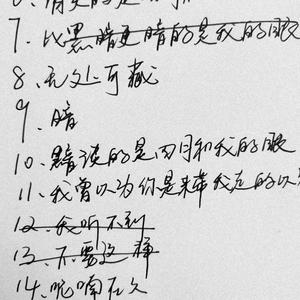 7. 比黑暗更暗的是我的眼
8. 无处可藏
9. 暗
10. 黯淡的是四月和我的眼
11. 我曾以为你是来带我走的以
12. 我听不到
13. 不要这样
14. 呢喃在久